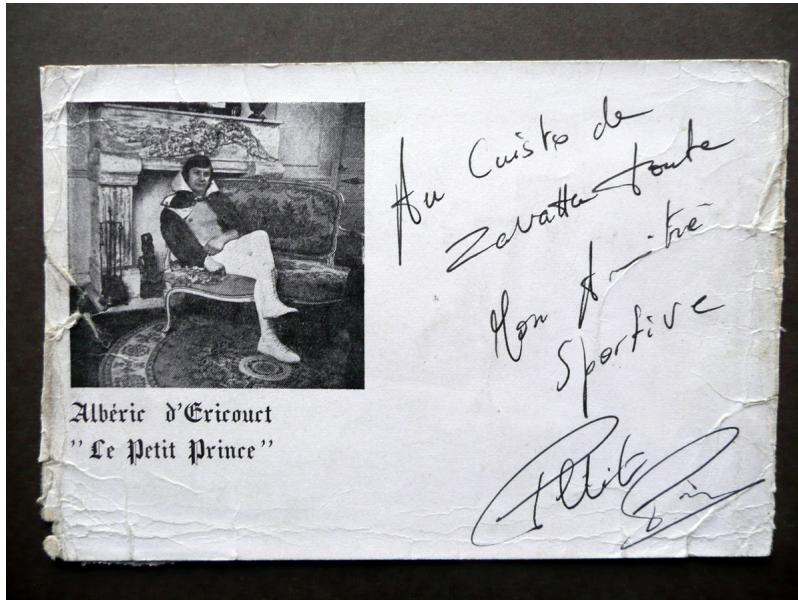 Albéric d'Ericourt
"Le Petit Prince"
Au Cuisto de
Zavatta toute
Mon Amitié
Sportive
Petit Prince